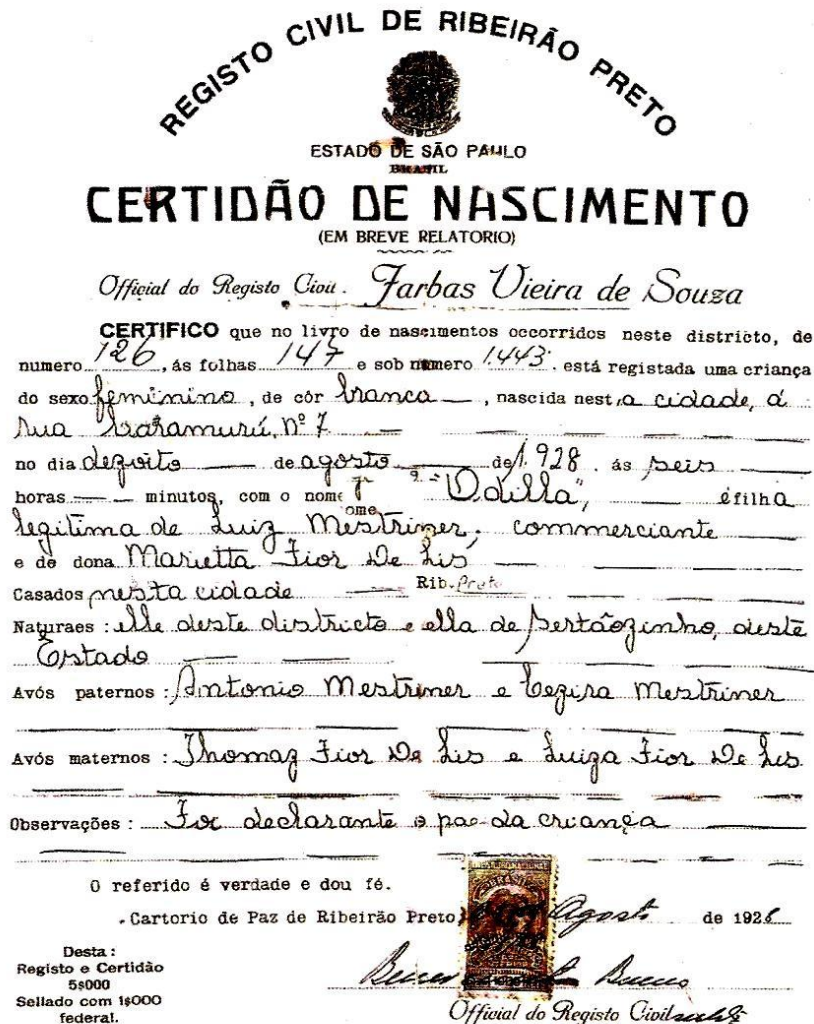 REGISTO CIVIL DE RIBEIRÃO PRETO
ESTADO DE SÃO PAULO
BRASIL
CERTIDÃO DE NASCIMENTO
(EM BREVE RELATORIO)
Official do Registo Civil. Jarbas Vieira de Souza
CERTIFICO que no livro de nascimentos occorridos neste districto, de
numero 126, ás folhas 147 e sob numero 1.443. está registada uma criança
do sexo feminino, de côr branca, nascida nesta cidade, á
rua Caramurú, Nº 7
no dia dezoito de agosto de 1.928. ás seis
horas minutos, com o nome "Odilla", é filha
legitima de Luiz Mestriner, commerciante
e de dona Marietta Fior De Lis
Casados nesta cidade Rib. Preto
Naturaes: elle deste districto e ella de Sertãozinho, deste
Estado
Avós paternos: Antonio Mestriner e Cezira Mestriner
Avós maternos: Thomaz Fior De Lis e Luiza Fior De Lis
Observações: Foi declarante o pae da criança
O referido é verdade e dou fé.
Cartorio de Paz de Ribeirão Preto, Agosto de 1928
Desta:
Registo e Certidão
5$000
Sellado com 1$000
federal.
BRASIL
Bueno
Official do Registo Civil